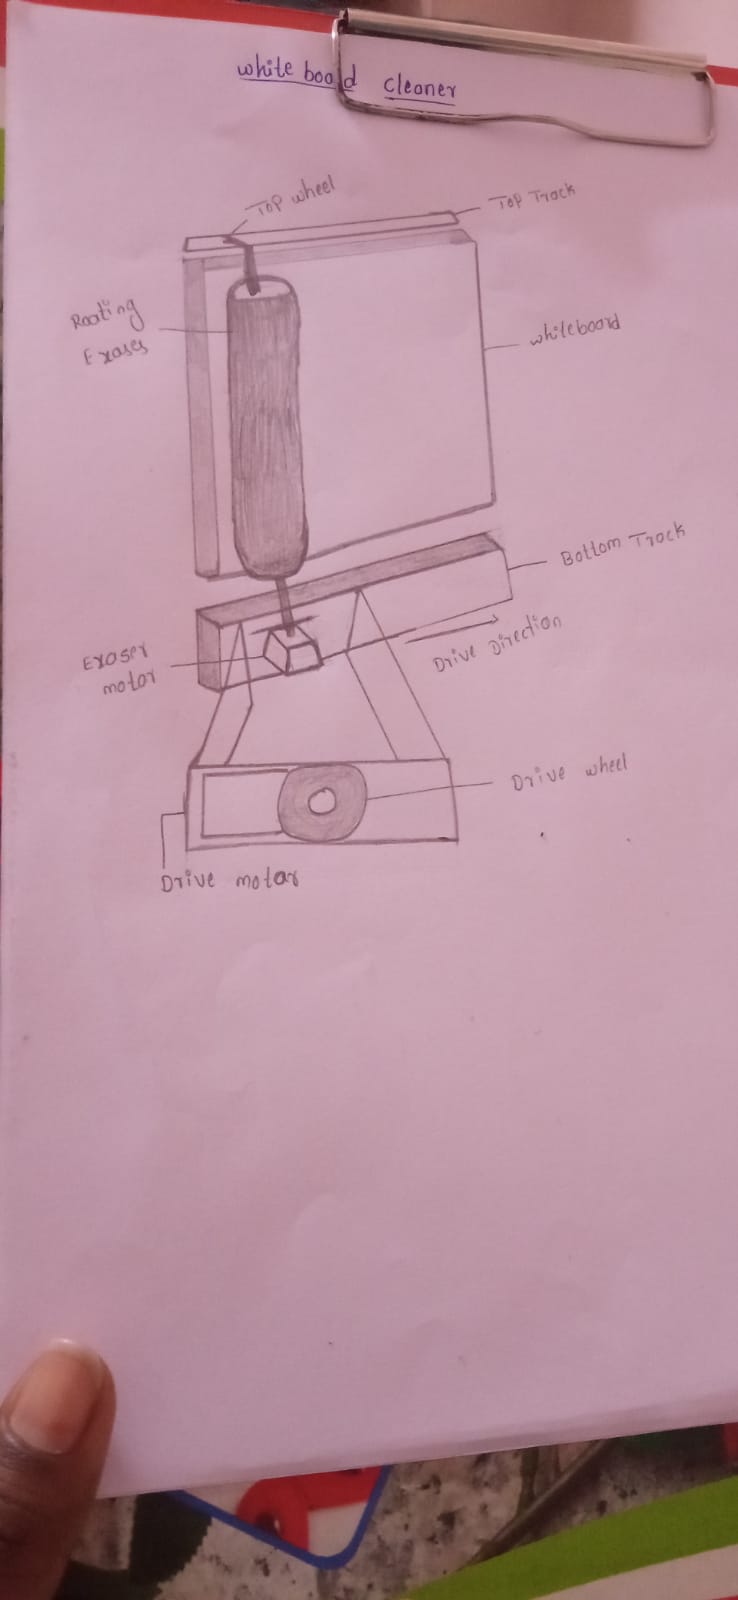 white board cleaner
Top wheel
Top Track
Roating
Eraser
whiteboard
Bottom Track
Eraser
motor
Drive Direction
Drive wheel
Drive motor